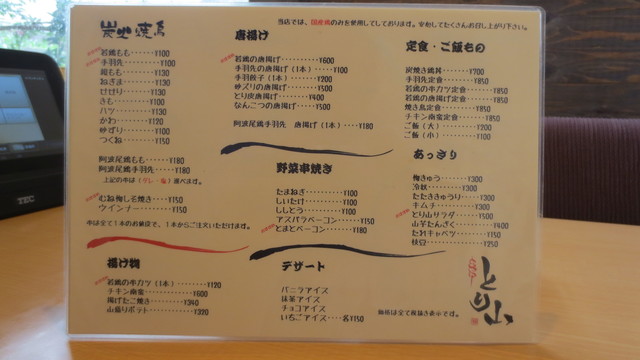 当店では、国産鶏のみを使用しております。安心してたくさんお召し上がり下さい。
炭火焼鳥
若鶏もも ¥100
手羽先 ¥100
親もも ¥130
ねぎま ¥130
せせり ¥130
さも ¥100
ハツ ¥130
かわ ¥120
砂ずり ¥100
つくね ¥150
阿波尾鶏もも ¥180
阿波尾鶏手羽先 ¥180
上記の串は（タレ・塩）選べます。
むね梅しそ焼き ¥150
ウインナー ¥150
串は全て1本のお値段で、1本からご注文いただけます。
揚げ物
若鶏の串カツ（1本） ¥120
チキン南蛮 ¥600
揚げたこ焼き ¥340
山盛りポテト ¥370
唐揚げ
若鶏の唐揚げ ¥600
手羽先の唐揚げ（1本） ¥100
手羽餃子（1本） ¥200
砂ズリの唐揚げ ¥500
とり皮唐揚げ ¥400
なんこつの唐揚げ ¥500
阿波尾鶏手羽先 唐揚げ（1本） ¥180
野菜串焼き
たまねぎ ¥100
しいたけ ¥100
ししとう ¥100
アスパラベーコン ¥150
とまとベーコン ¥180
デザート
バニラアイス
抹茶アイス
チョコアイス
いちごアイス 各¥150
定食・ご飯もの
炭焼き鶏丼 ¥700
手羽先定食 ¥850
若鶏の串カツ定食 ¥850
若鶏の唐揚げ定食 ¥850
焼き鳥定食 ¥850
チキン南蛮定食 ¥850
ご飯（大） ¥200
ご飯（小） ¥100
あっさり
梅きゅう ¥300
冷奴 ¥300
たたききゅうり ¥300
キムチ ¥300
とり山サラダ ¥500
山芋たんざく ¥400
たれキャベツ ¥150
枝豆 ¥250
とり山
価格は全て税抜き表示です。
TEC